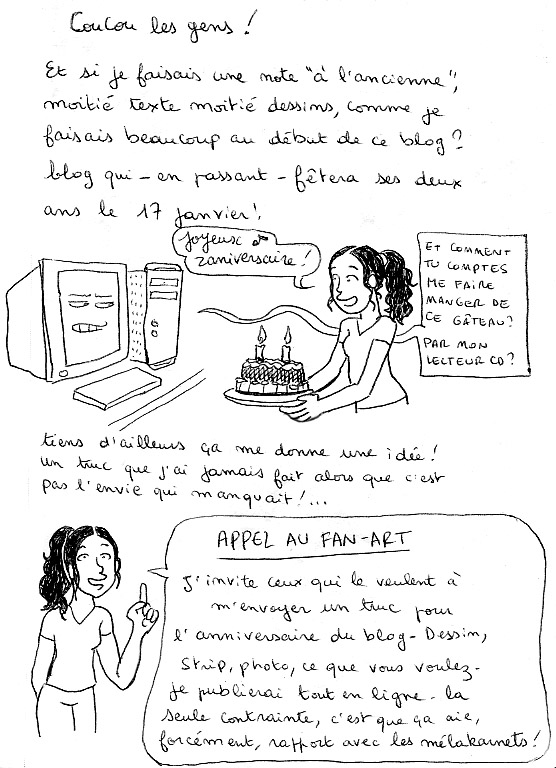 CouCou les gens !
Et si je faisais une note "à l'ancienne",
moitié texte moitié dessins, comme je
faisais beaucoup au début de ce blog ?
blog qui - en passant - fêtera ses deux
ans le 17 janvier !
joyeux
zaniversaire !
ET COMMENT
TU COMPTES
ME FAIRE
MANGER DE
CE GÂTEAU ?
PAR MON
LECTEUR CD ?
tiens d'ailleurs ça me donne une idée !
un truc que j'ai jamais fait alors que c'est
pas l'envie qui manquait !...
APPEL AU FAN-ART
J'invite ceux qui le veulent à
m'envoyer un truc pour
l'anniversaire du blog - Dessin,
strip, photo, ce que vous voulez -
je publierai tout en ligne - la
seule contrainte, c'est que ça aie,
forcément, rapport avec les mélakarnets !